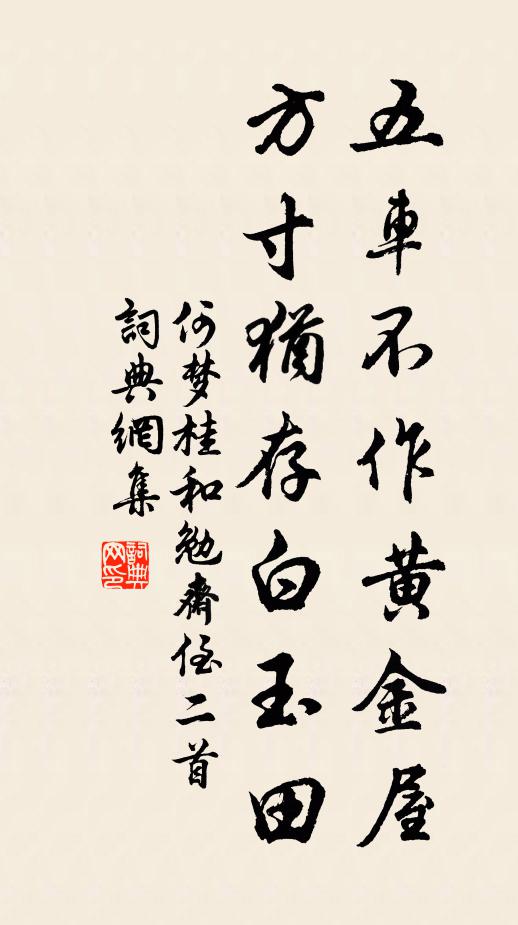 五車不作黄金屋
方寸猶存白玉田
何梦桂和勉齋侄二首
詞典網集
詞典
网印